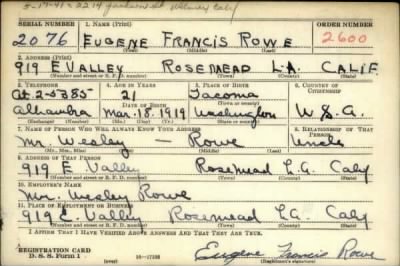 5-19-41-
SERIAL NUMBER 1. NAME (Print) ORDER NUMBER
2076 EUGENE FRANCIS ROWE 2600
(First) (Middle) (Last)
2. ADDRESS (Print)
919 E VALLEY ROSEMEAD L.A. CALIF
(Number and street or R. F. D. number) (Town) (County) (State)
3. TELEPHONE 4. AGE IN YEARS 5. PLACE OF BIRTH 6. COUNTRY OF CITIZENSHIP
At. 2-0385 21 Tacoma
DATE OF BIRTH (Town or county)
Alhambra Mar. 18. 1919 Washington U.S.A.
(Exchange) (Number) (Mo.) (Day) (Yr.) (State or country)
7. NAME OF PERSON WHO WILL ALWAYS KNOW YOUR ADDRESS 8. RELATIONSHIP OF THAT PERSON
Mr. Wesley — Rowe Uncle
(Mr., Mrs., Miss) (First) (Middle) (Last)
9. ADDRESS OF THAT PERSON
919 E Valley Rosemead L.A. Caly
(Number and street or R. F. D. number) (Town) (County) (State)
10. EMPLOYER'S NAME
Mr. Wesley Rowe
11. PLACE OF EMPLOYMENT OR BUSINESS
919 E. Valley Rosemead L.A. Caly
(Number and street or R. F. D. number) (Town) (County) (State)
I AFFIRM THAT I HAVE VERIFIED ABOVE ANSWERS AND THAT THEY ARE TRUE.
REGISTRATION CARD
D. S. S. Form 1 (over) 16-17106 Eugene Francis Rowe
(Registrant's signature)